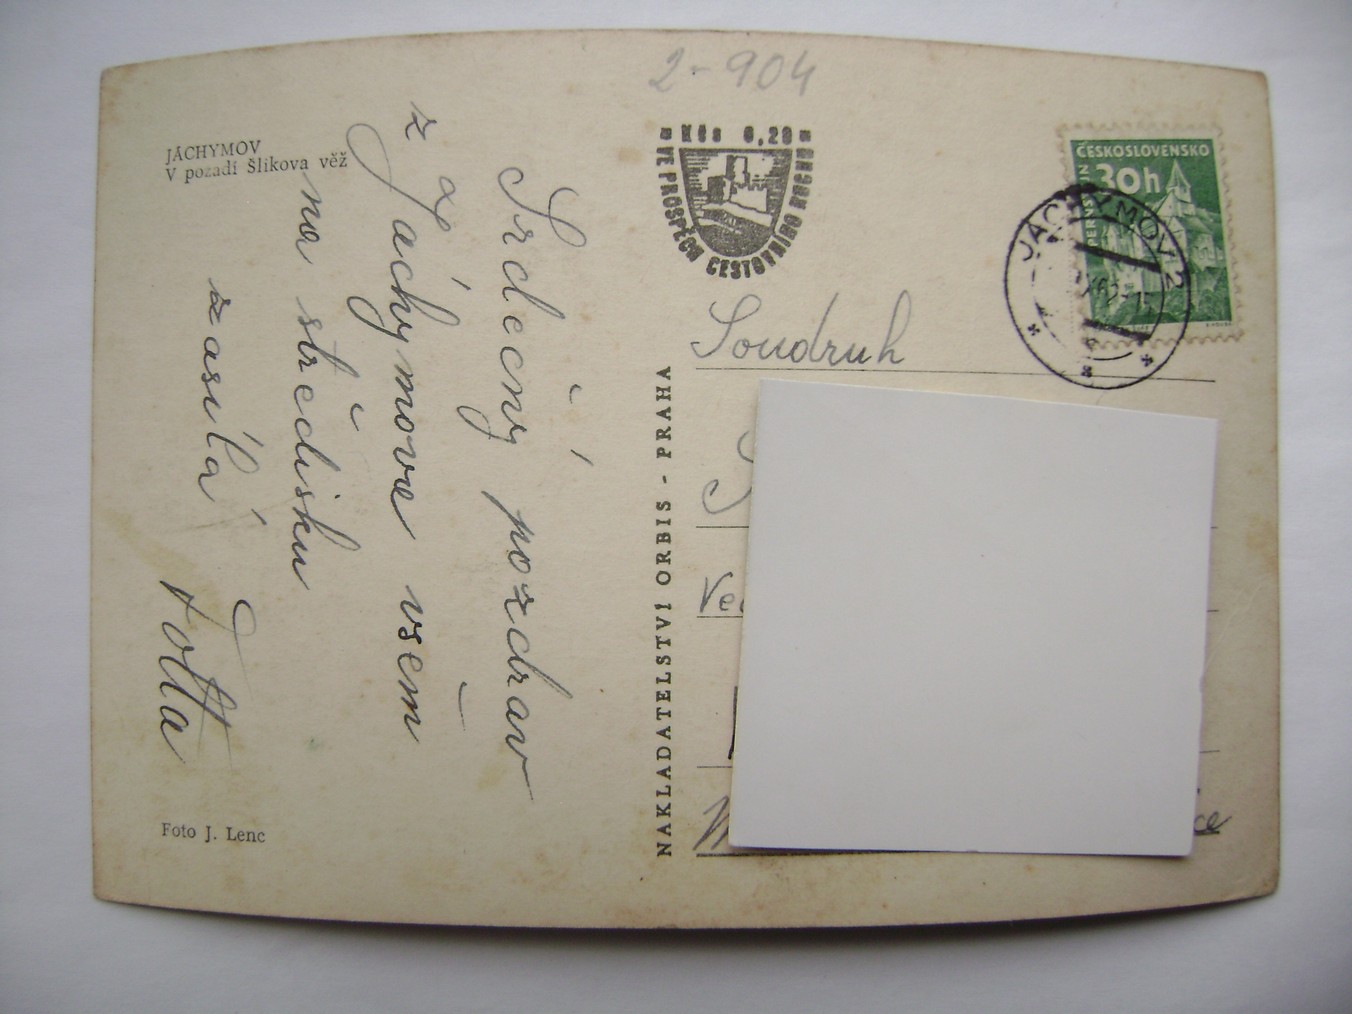 2-904
JÁCHYMOV
V pozadí Šlikova věž
Srdečný pozdrav
z Jáchymova všem
na středisku
zasílá
Foto J. Lenc
NAKLADATELSTVÍ ORBIS - PRAHA
Kčs 0,20
VE PROSPĚCH CESTOVNÍHO RUCHU
ČESKOSLOVENSKO
30h
JÁCHYMOV 2
Soudruh